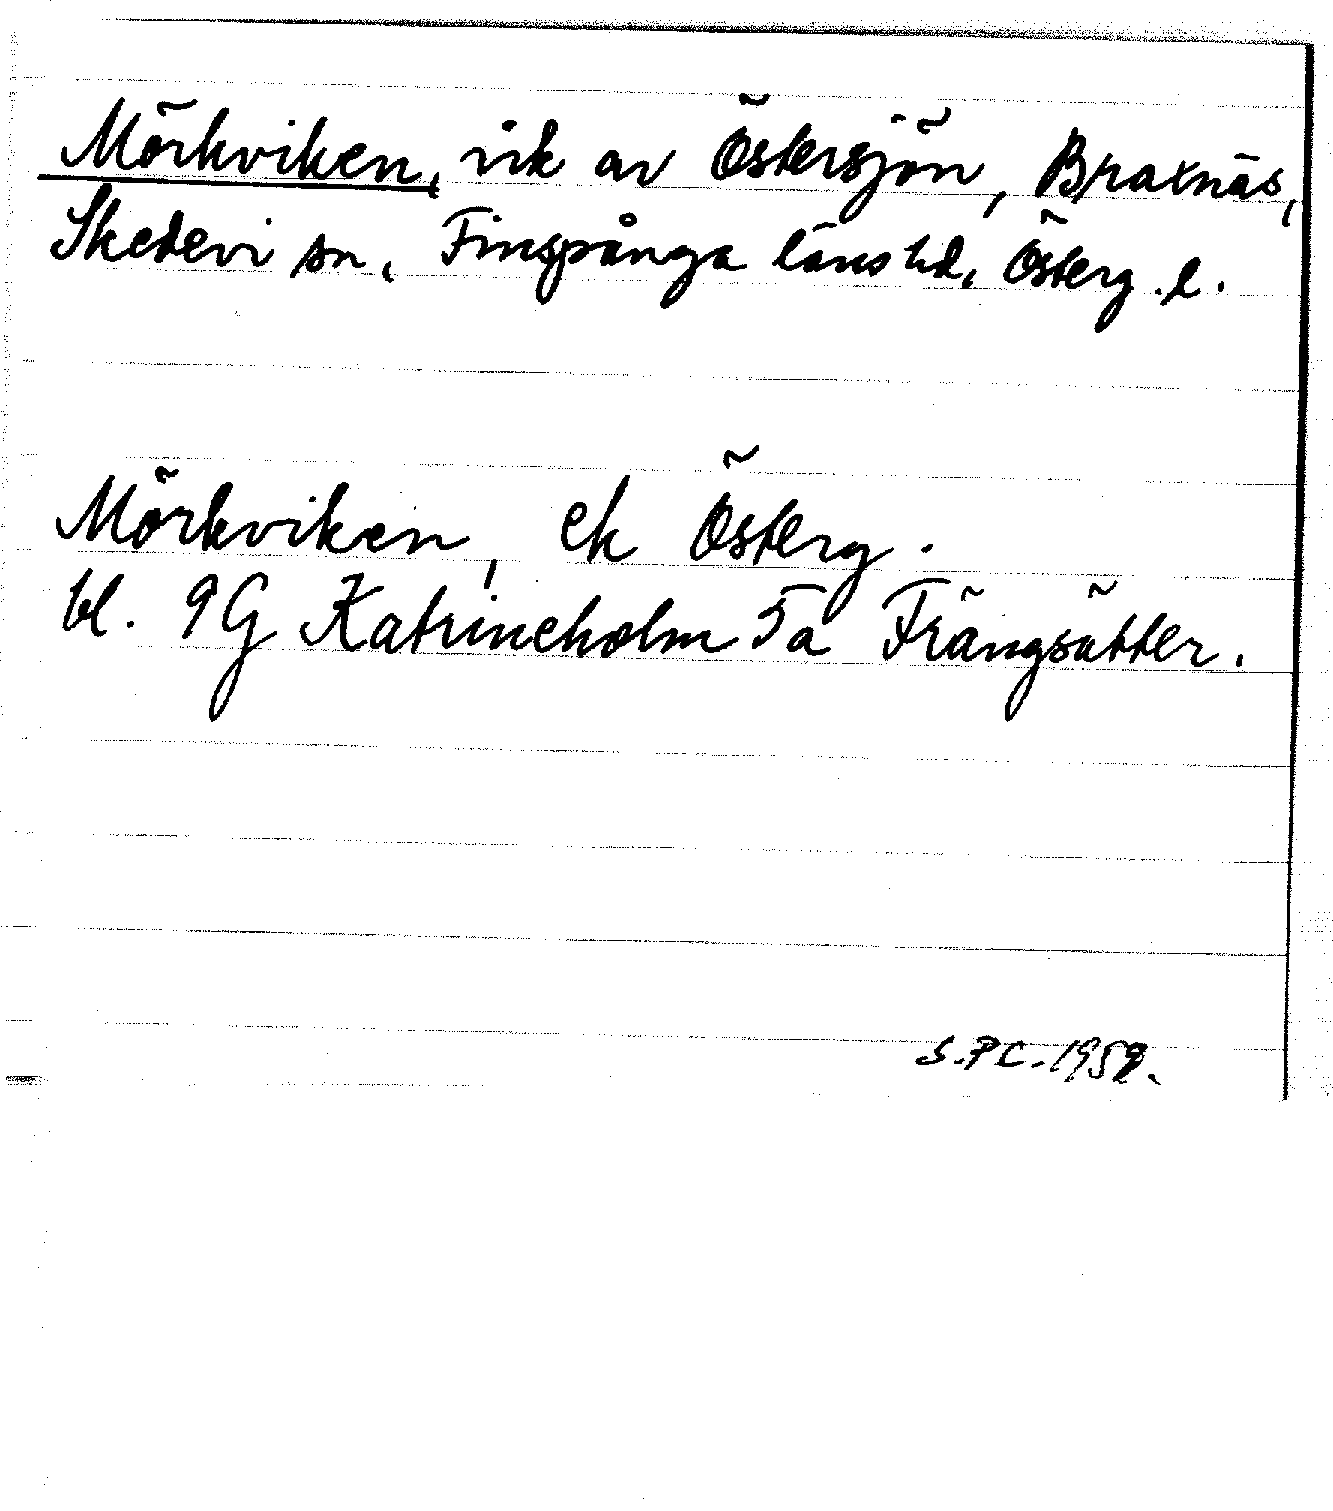 Mörkviken, vik av Östersjön, Braxnäs,
Skedevi sn, Finspånga läns hd, Österg. l.
Mörkviken, ek Österg.
bl. 9G Katrineholm 5a Frängsätter.
S.P.C. 1959.